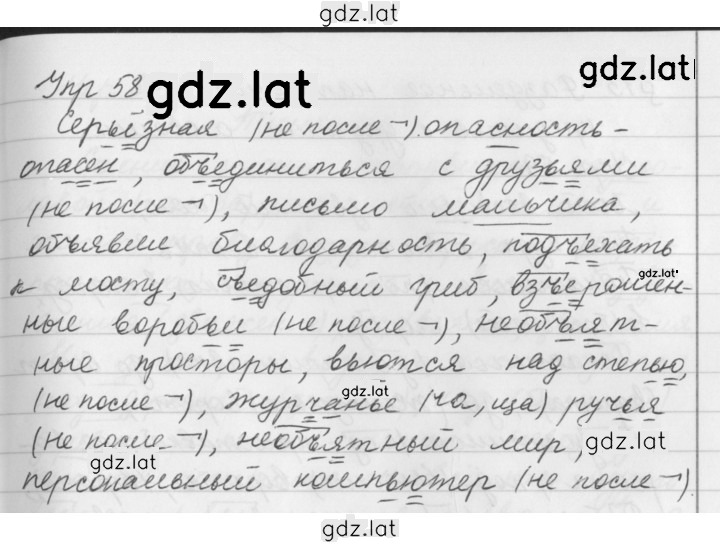 gdz.lat
Упр 58
gdz.lat
gdz.lat
Серьёзная (не после ¬) опасность -
опасен, объединиться с друзьями
(не после ¬), письмо мальчика,
объявили благодарность, подъехать
к мосту, съедобный гриб, взъерошен-
gdz.lat
ные воробьи (не после ¬), необъят-
ные просторы, вьются над степью,
gdz.lat
(не после ¬), журчанье (ча, ща) ручья
(не после ¬), необъятный мир,
gdz.lat
gdz.lat
персональный компьютер (не после ¬)
gdz.lat